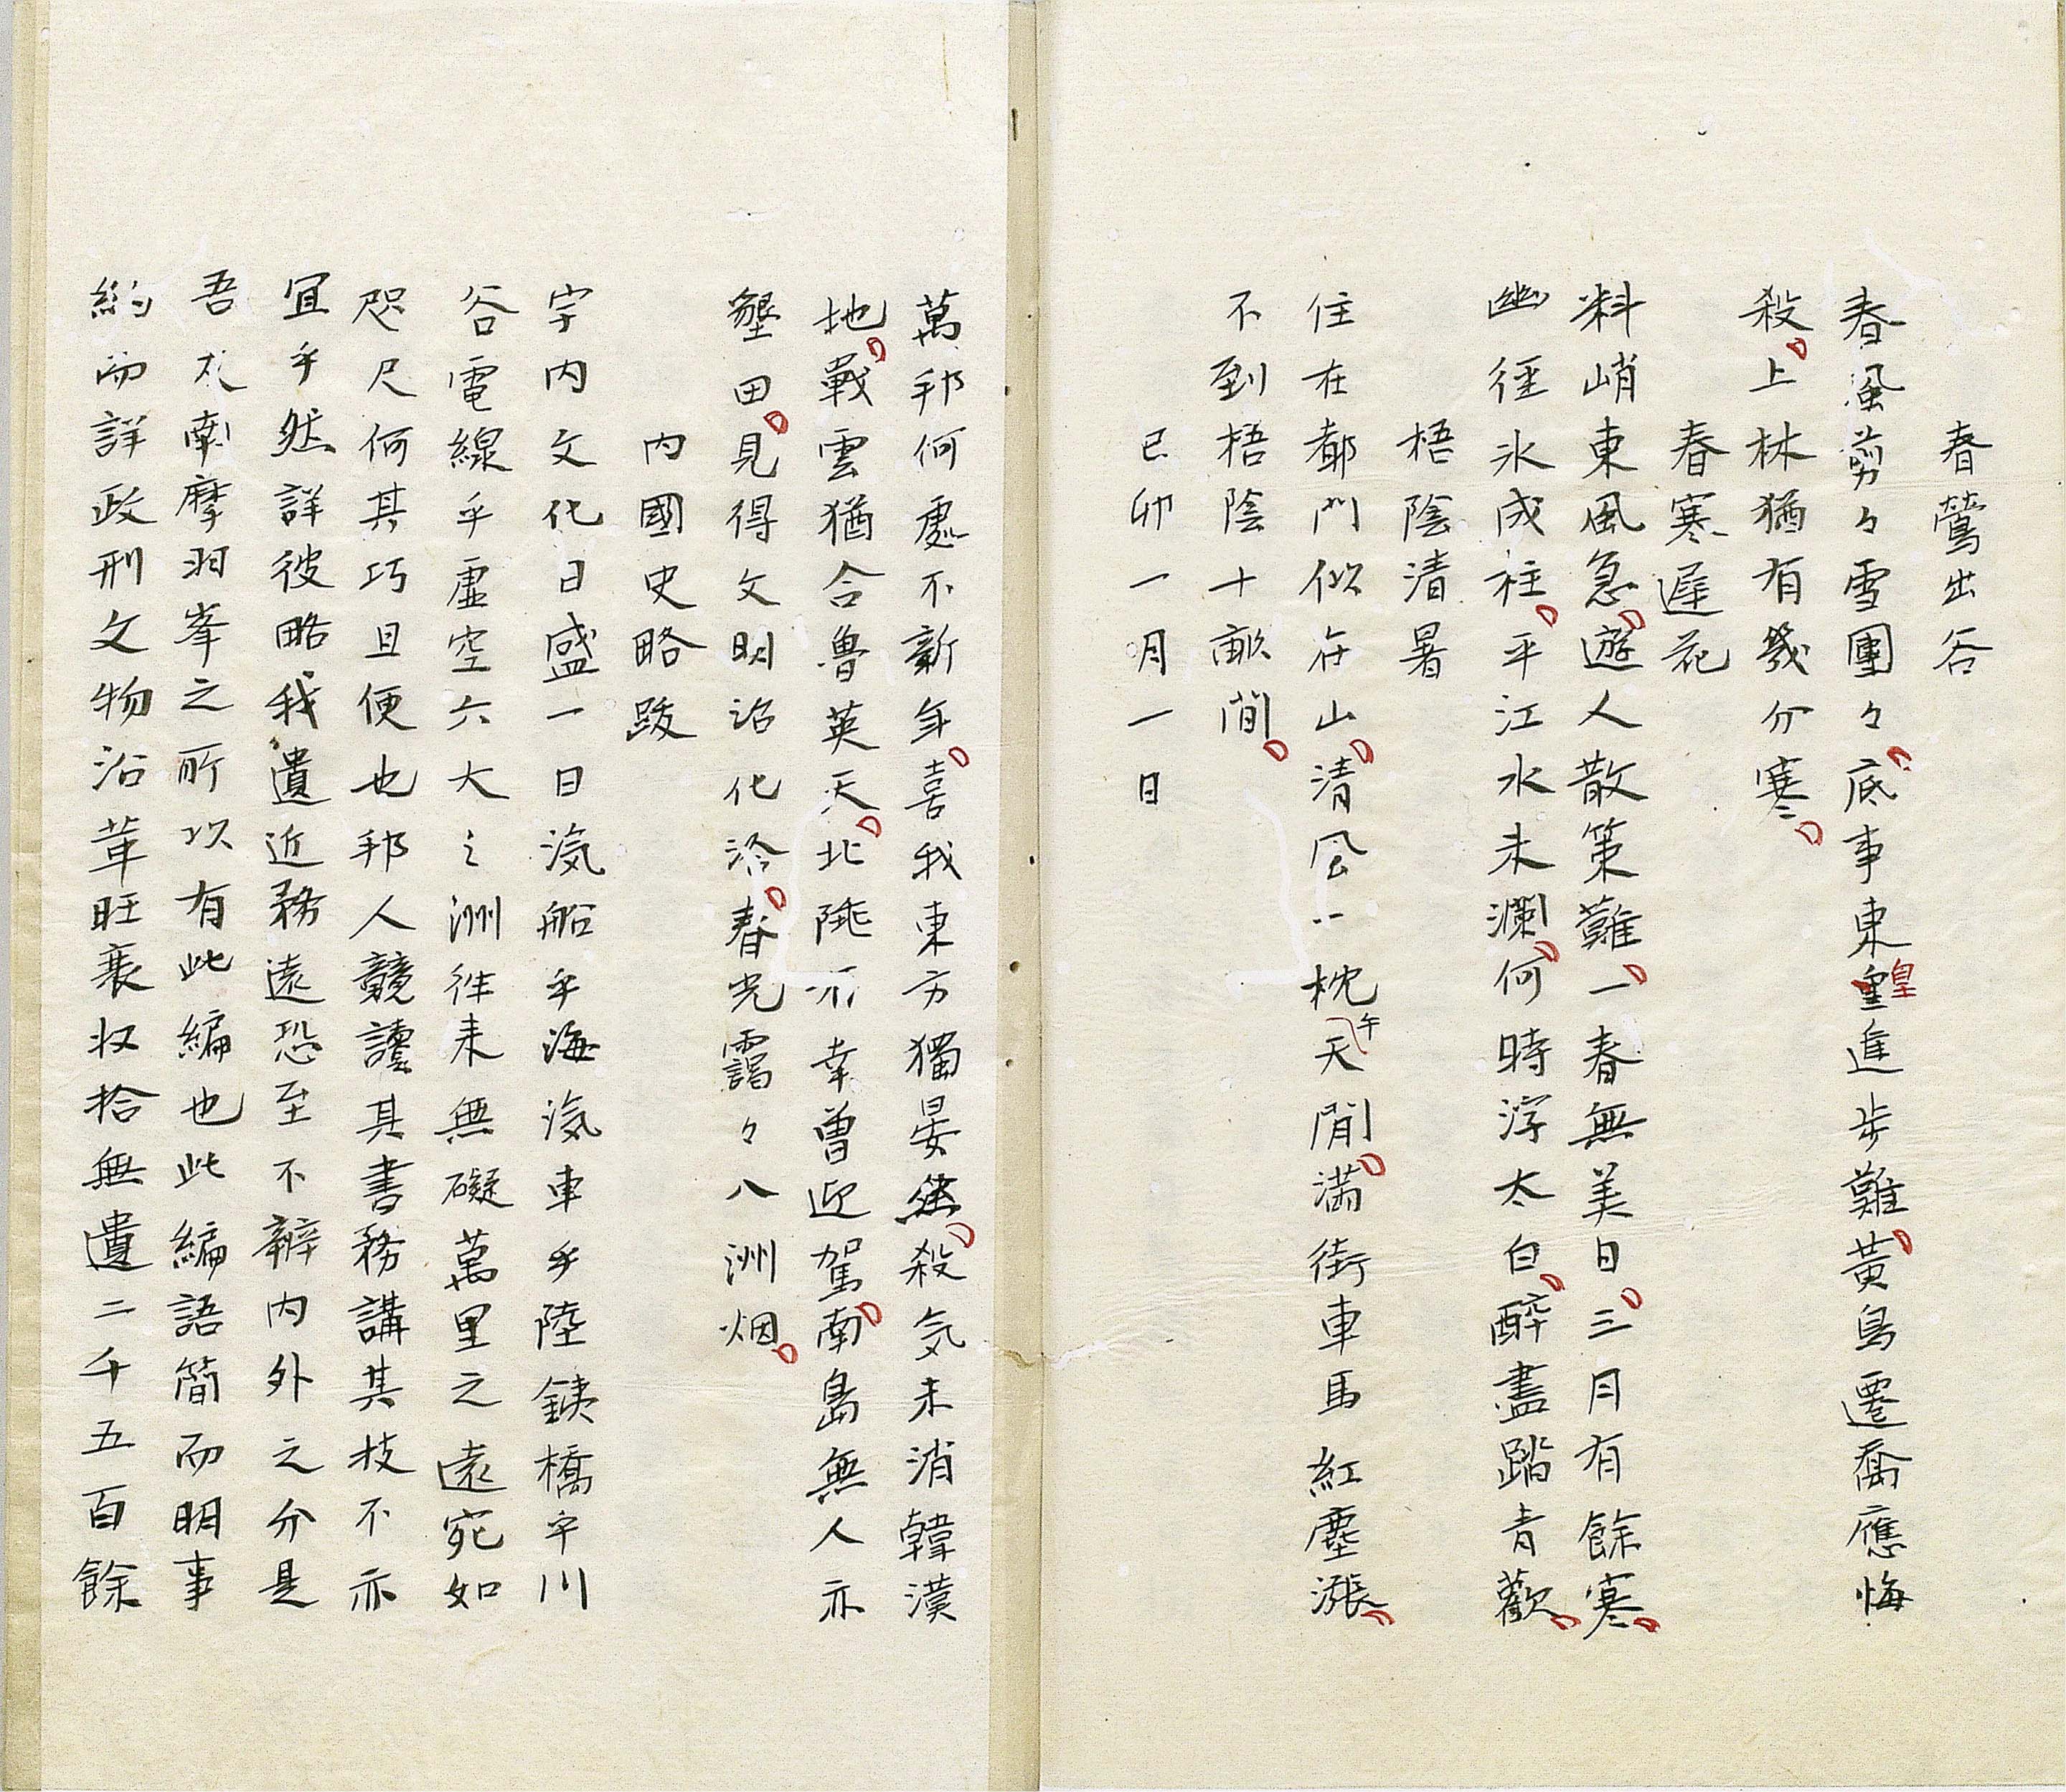 春鶯出谷
春風剪々雪團々底事東皇進步難黃鳥遷喬應悔
殺上林猶有幾分寒
春寒遲花
料峭東風急遊人散策難一春無美日三月有餘寒
幽徑氷成柱平江水未瀾何時浮太白醉盡踏青歡
梧陰清暑
住在都門似在山清風一枕午天間滿街車馬紅塵漲
不到梧陰十畝間
己卯一月一日
萬邦何處不新年喜我東方獨晏然殺気未消韓漠
地戰雲猶合魯英天北陲不幸曾迎駕南島無人亦
墾田見得文明治化洽春光靄々八洲烟
內國史略跋
宇內文化日盛一日滊船乎海滊車乎陸鉄橋乎川
谷電線乎虛空六大之洲徃来無礙萬里之遠宛如
咫尺何其巧且便也邦人競讀其書務講其技不亦
冝乎然詳彼略我遺近務遠恐至不辨內外之分是
吾友南摩羽峯之所以有此編也此編語簡而明事
約而詳政刑文物沿革旺衰収拾無遺二千五百餘